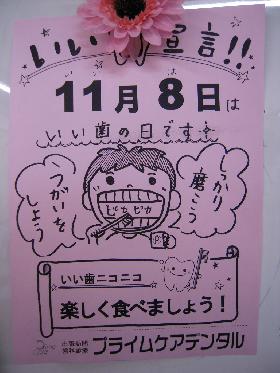 いい 宣言!!
い い は
11月8日は
いい歯の日です
うがいをしよう
しっかり磨こう
ピカ
いい歯ニコニコ
楽しく食べましょう!
出張訪問
歯科診療
プライムケアデンタル